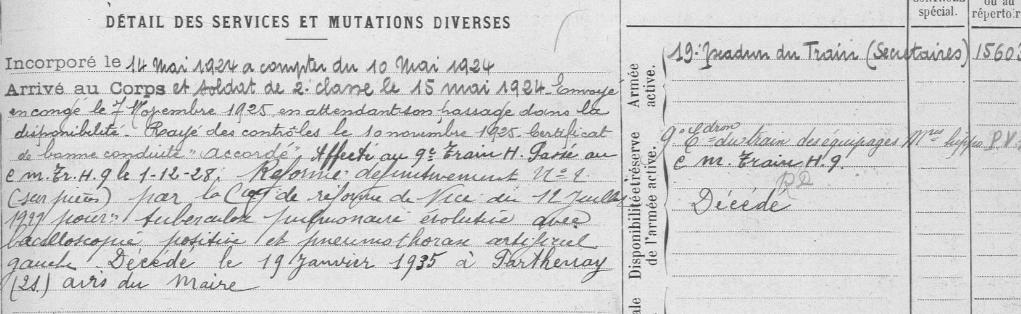 DÉTAIL DES SERVICES ET MUTATIONS DIVERSES
Incorporé le 14 Mai 1924 a compter du 10 Mai 1924
Arrivé au Corps et soldat de 2e classe le 15 mai 1924. Envoyé
en congé le 7 Novembre 1925 en attendant son passage dans la
disponibilité. Rayé des contrôles le 10 novembre 1925. Certificat
de bonne conduite "accordé" Affecté au 9e Train H. Passé au
C m. Tr. H. 9 le 1-12-28; Réformé définitivement N° 2
(sur pièces) par la Con de réforme de Nice du 12 Juillet
pour "tuberculose pulmonaire évolutive avec
bacilloscopie positive et pneumothorax artificiel
gauche Décédé le 19 Janvier 1935 à Parthenay
(2S.) avis du Maire
spécial.
ou au
répertoire
Armée
active.
19e Escadron du Train (Secrétaires)
1560
Disponibilité et réserve
de l'armée active.
9e Edron du Train des équipages
C m. Train H. 9.
Décédé